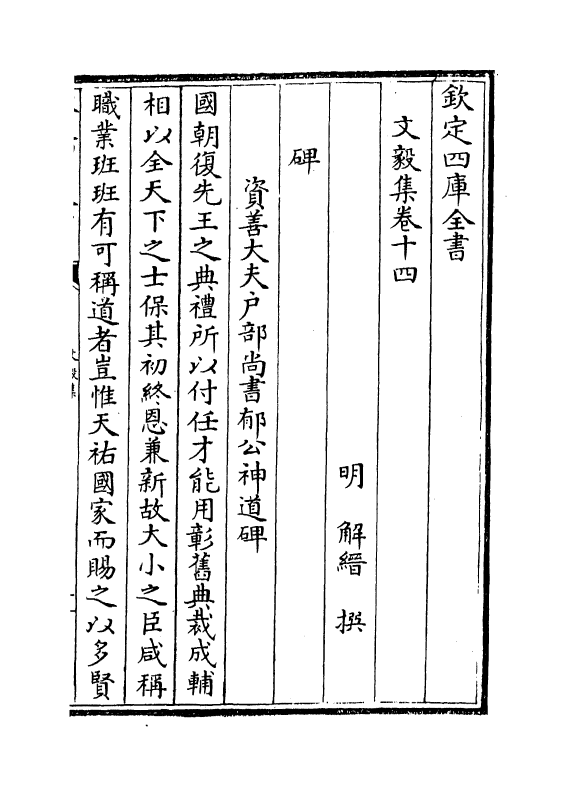 欽定四庫全書
文毅集卷十四
明 解縉 撰
碑
資善大夫户部尚書郁公神道碑
國朝復先王之典禮所以付任才能用彰舊典裁成輔
相以全天下之士保其初終恩兼新故大小之臣咸稱
職業班班有可稱道者豈惟天祐國家而賜之以多賢